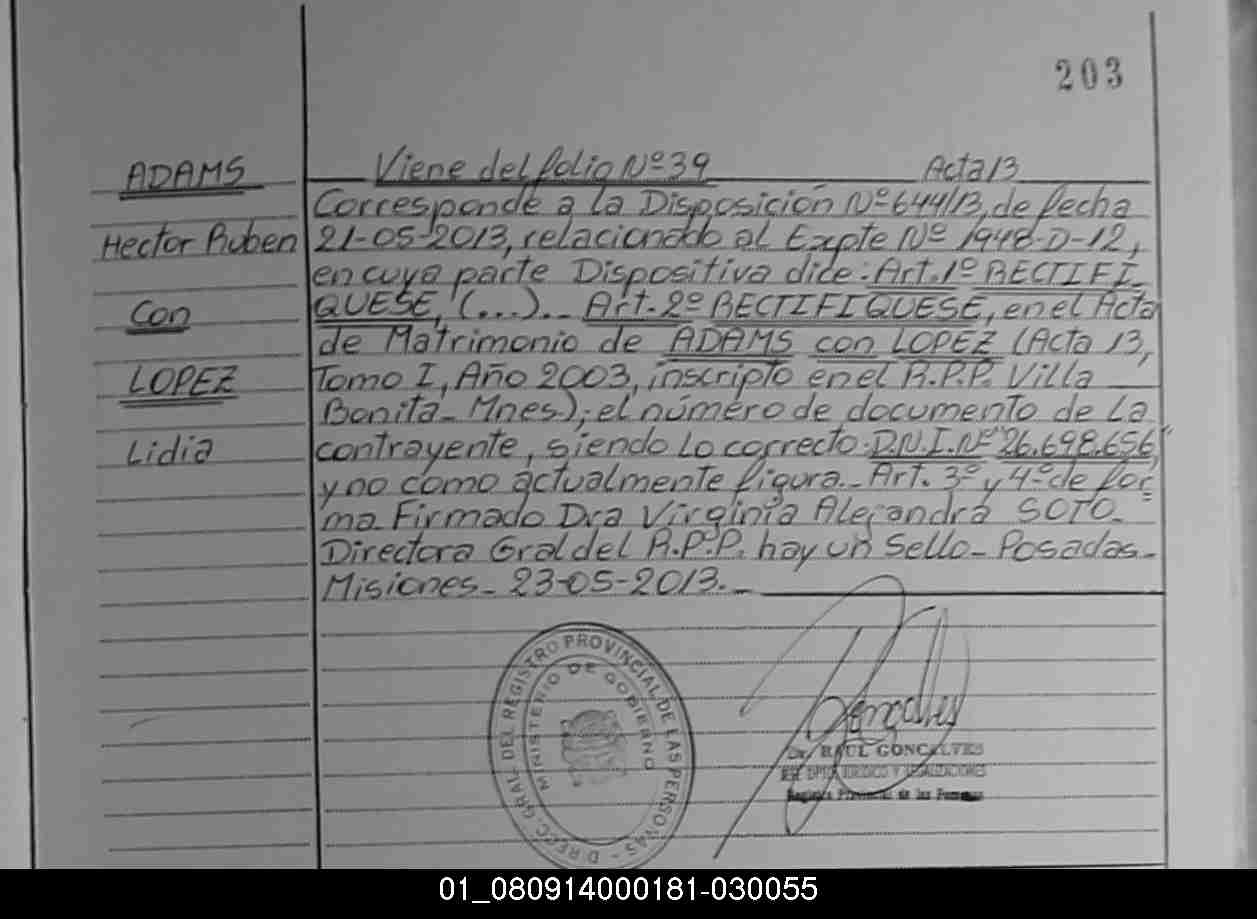 203
ADAMS
Hector Ruben
Con
LOPEZ
Lidia
Viene del folio Nº 39 Acta 13
Corresponde a la Disposición Nº 644/13, de fecha
21-05-2013, relacionado al Expte Nº 1948-D-12,
en cuya parte Dispositiva dice: Art. 1º RECTIFI-
QUESE, (...)._ Art. 2º RECTIFIQUESE, en el Acta
de Matrimonio de ADAMS con LOPEZ (Acta 13,
Tomo I, Año 2003, inscripto en el R.P.P. Villa
Bonita_ Mnes.); el número de documento de la
contrayente, siendo lo correcto: D.N.I. Nº "26.698.656",
y no como actualmente figura._ Art. 3º y 4º de for=
ma_ Firmado Dra Virginia Alejandra SOTO_
Directora Gral del R.P.P. hay un Sello_ Posadas_
Misiones_ 23-05-2013._
DIRECC. GRAL. DEL REGISTRO PROVINCIAL DE LAS PERSONAS -
MINISTERIO DE GOBIERNO
Goncalves
Dr. RAUL GONCALVES
DPTO. JURIDICO Y LEGALIZACIONES
Registro Provincial de las Personas
01_080914000181-030055